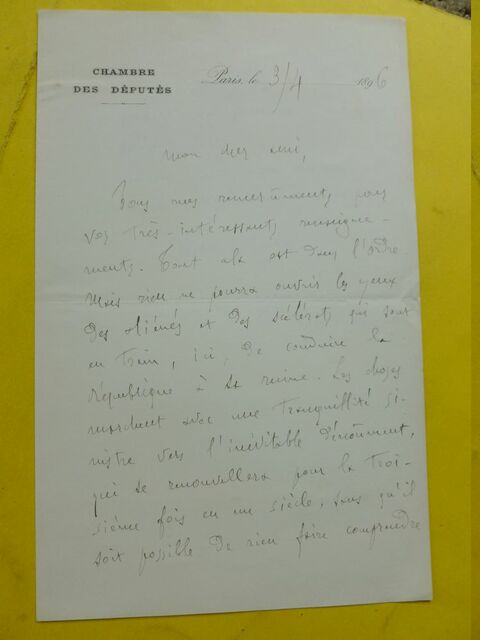 CHAMBRE
DES DÉPUTÉS
Paris, le 3/4 1896
Mon cher ami,
Tous mes remerciements pour
vos très-intéressants renseigne-
ments. Tout cela est dans l'ordre.
Mais rien ne pourra ouvrir les yeux
des aliénés et des scélérats qui sont
en train, ici, de conduire la
République à sa ruine. Les choses
marchent avec une tranquillité si-
nistre vers l'inévitable dénouement,
qui se renouvellera pour la troi-
sième fois en un siècle, sans qu'il
soit possible de rien faire comprendre